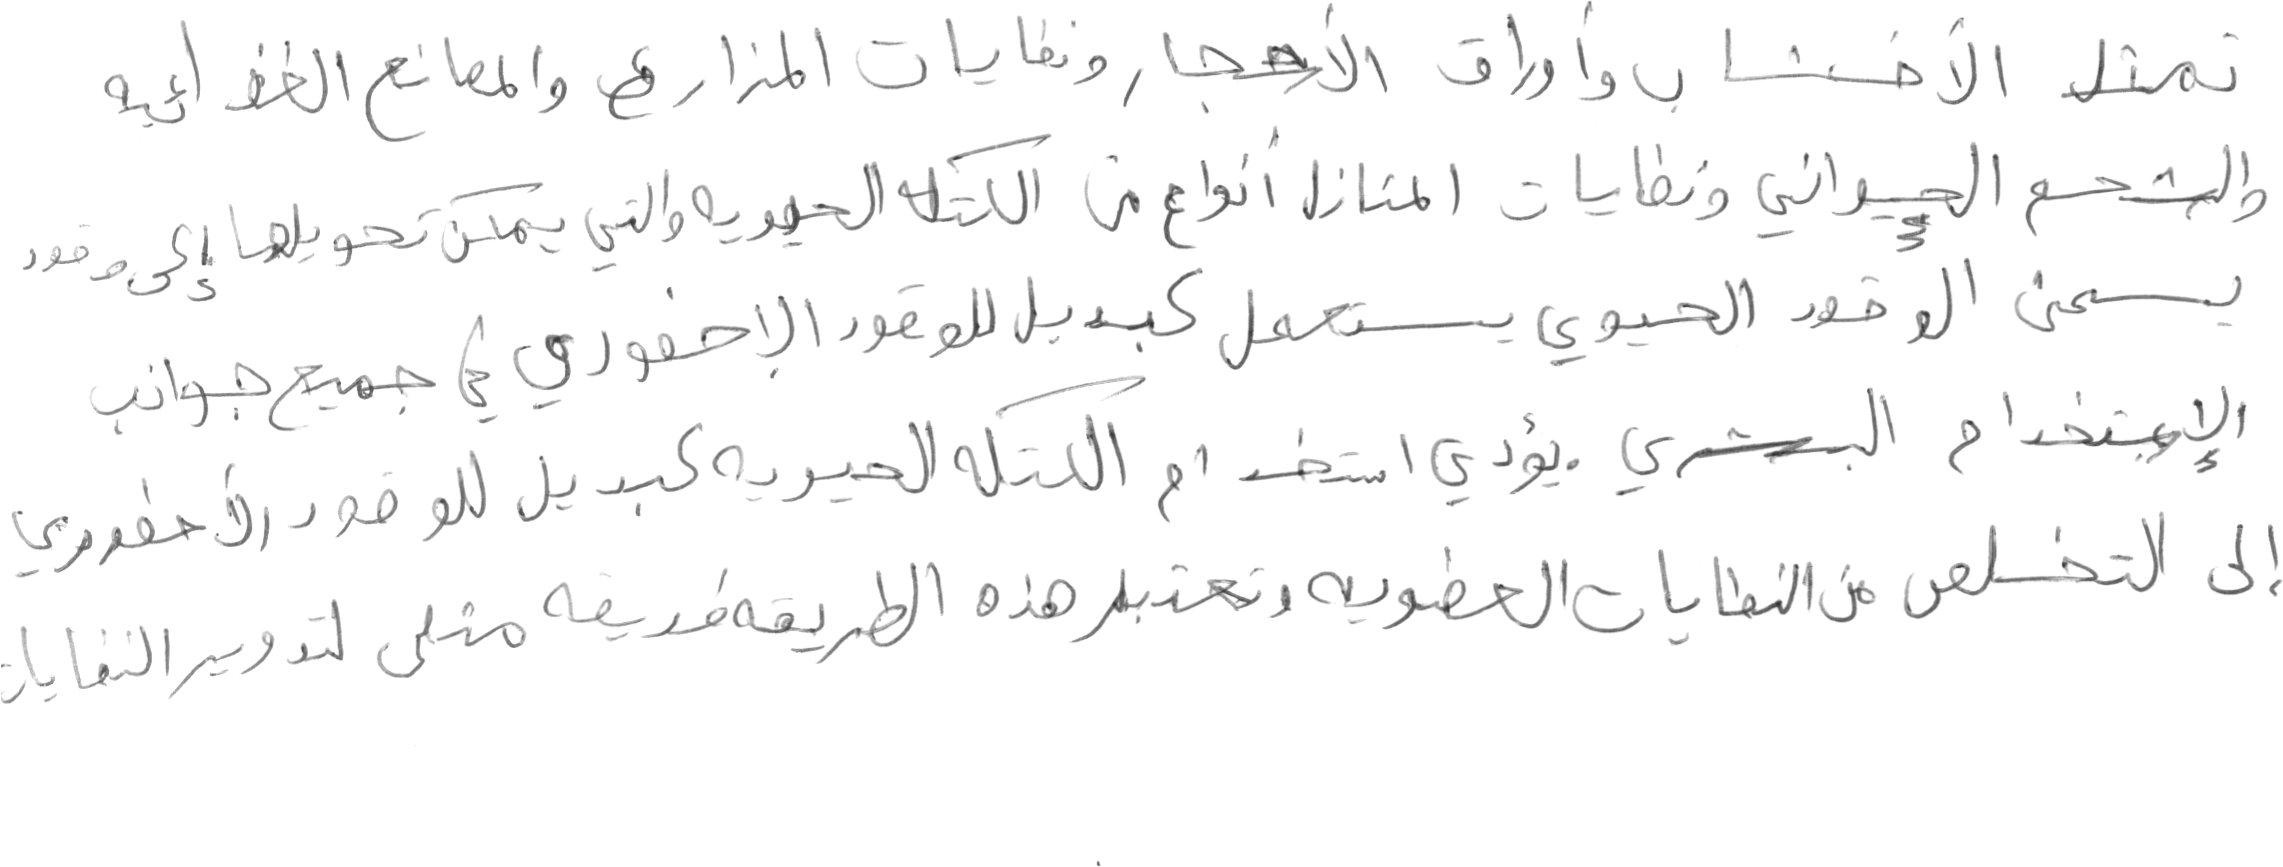 تمثل الأخشاب وأوراق الأشجار ونفايات المزارع والمصانع الغذائيه
والشحم الحيواني ونفايات المنازل أنواع من الكتله الحيويه والتي يمكن تحويلها إلى وقود
يسمى الوقود الحيوي يستعمل كبديل للوقود الإحفوري في جميع جوانب
الإستخدام البشري . يؤدي استخدام الكتله الحيويه كبديل للوقود الأحفوري
إلى التخلص من النفايات العضويه وتعتبر هذه الطريقه طريقه مثلى لتدوير النفايات